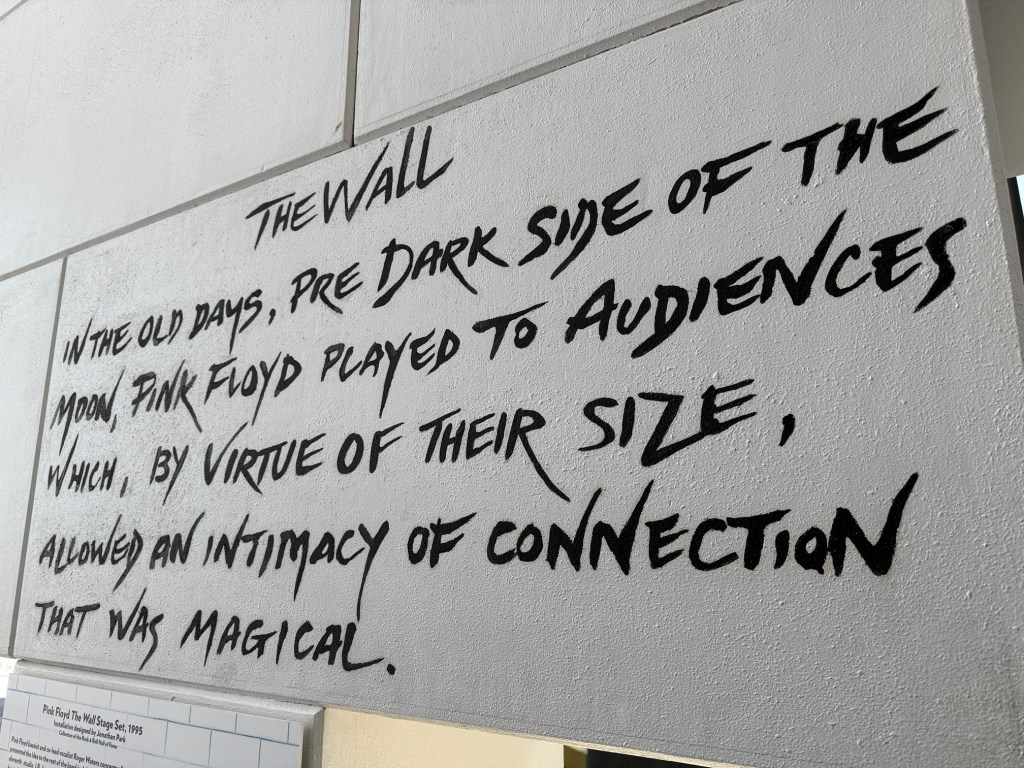 THE WALL
IN THE OLD DAYS, PRE DARK SIDE OF THE
MOON, PINK FLOYD PLAYED TO AUDIENCES
WHICH, BY VIRTUE OF THEIR SIZE,
ALLOWED AN INTIMACY OF CONNECTION
THAT WAS MAGICAL.
Pink Floyd The Wall Stage Set, 1995
Installation designed by Jonathan Park
Collection of the Rock & Roll Hall of Fame
Pink Floyd bassist and co-lead vocalist Roger Waters
presented the idea to the rest of the